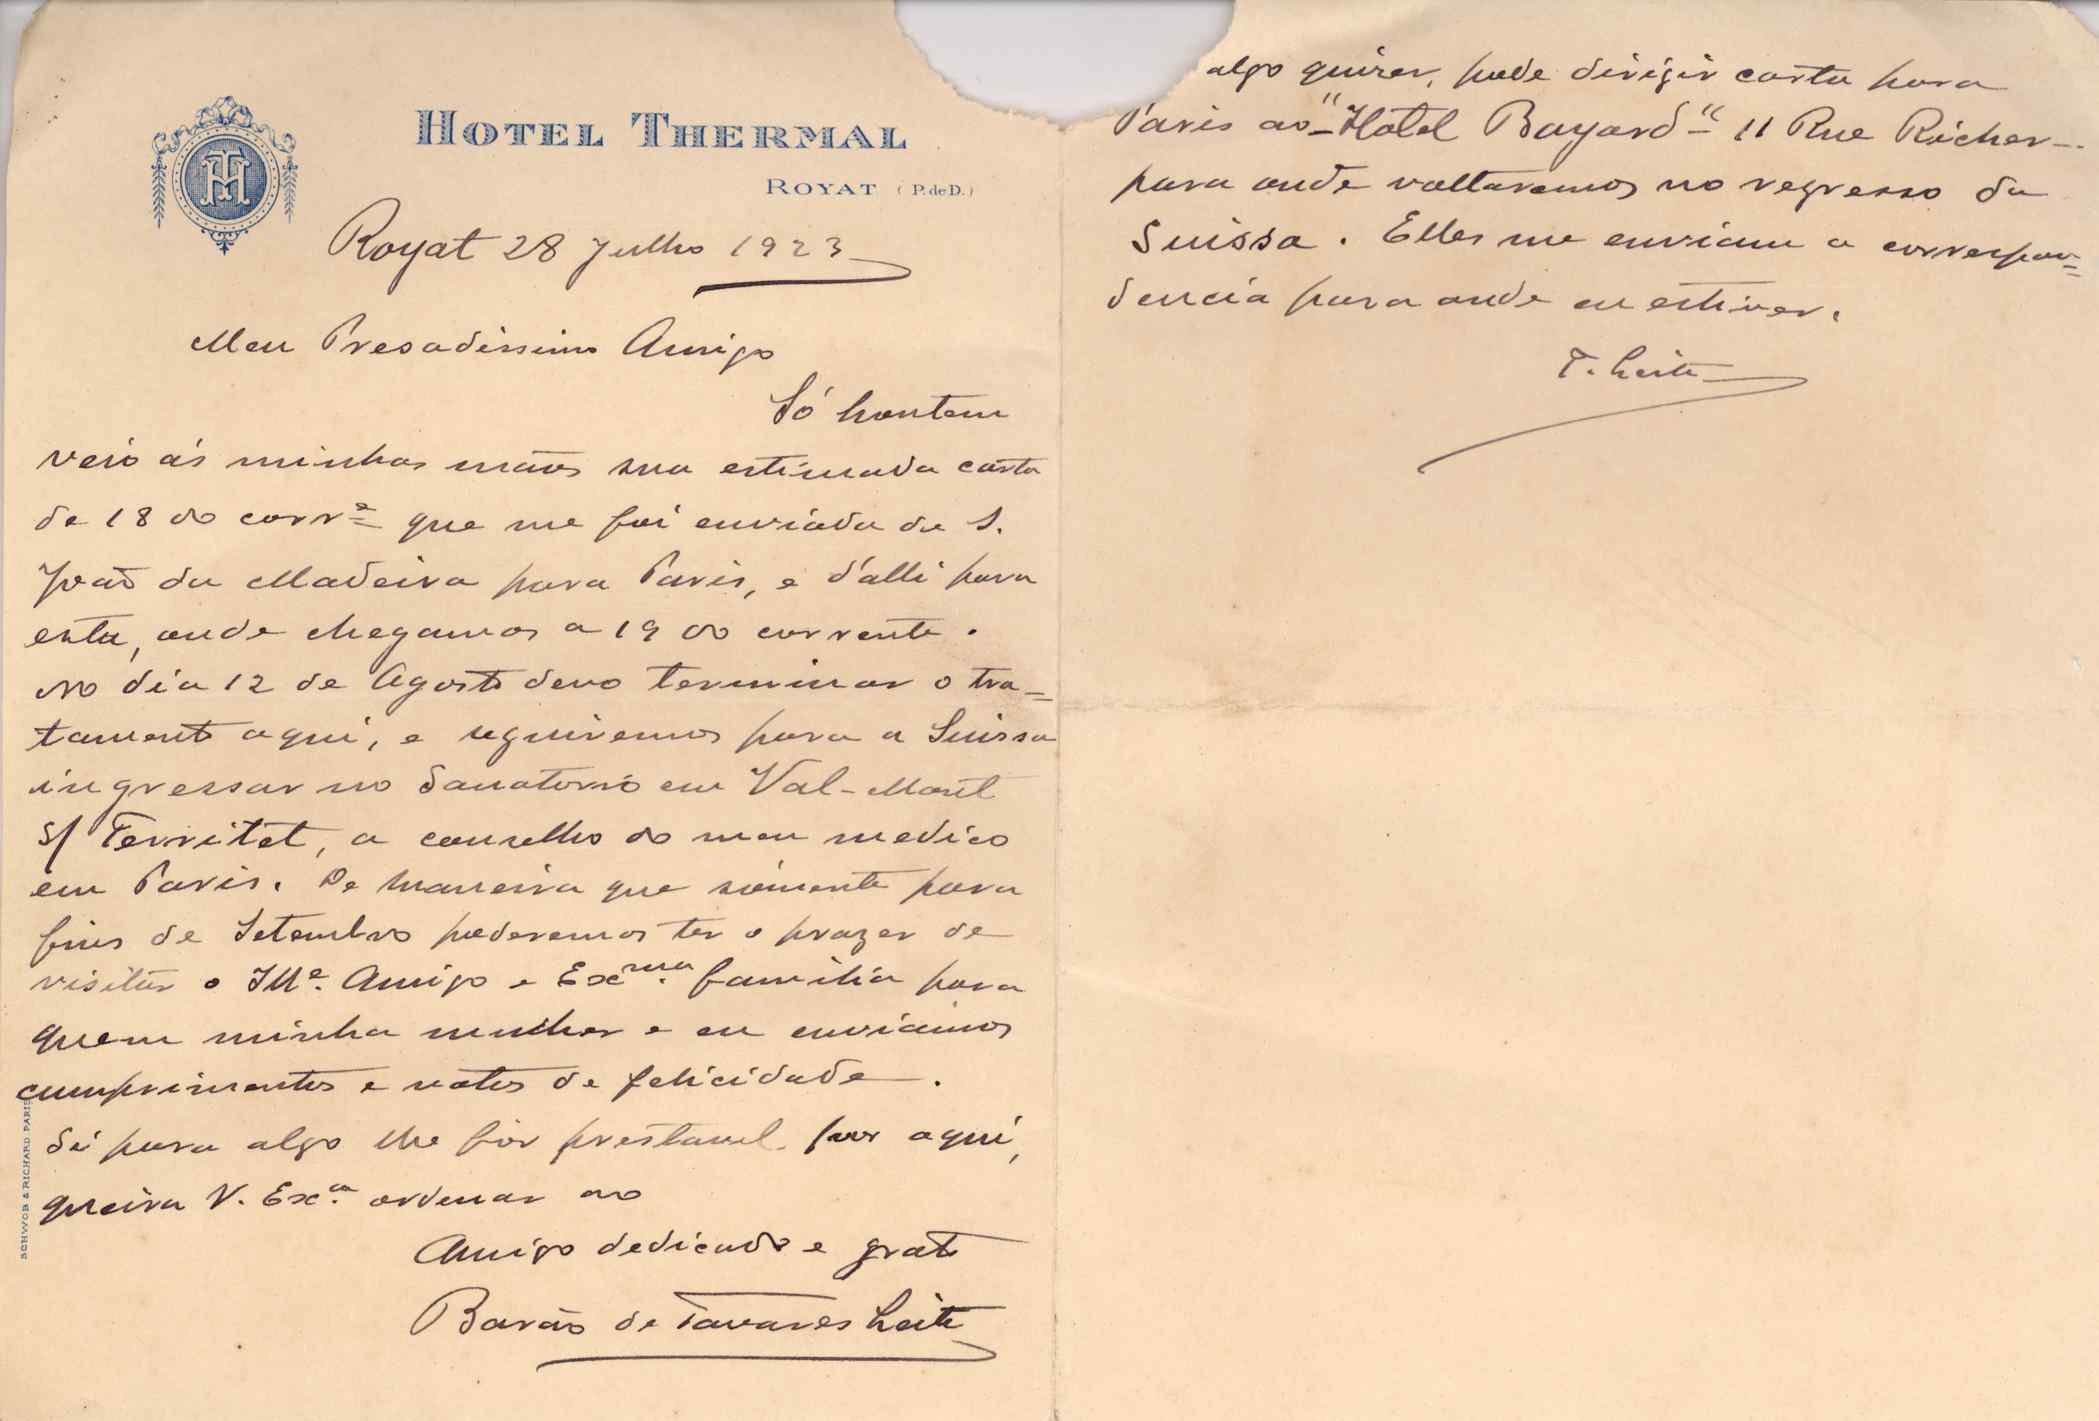 HOTEL THERMAL
ROYAT (P. de D.)
Royat 28 Julho 1923
Meu Presadissimo Amigo
Só hontem
veio ás minhas mãos sua estimada carta
de 18 do corr.e que me foi enviada de S.
João da Madeira para Paris, e d'alli para
esta, onde chegamos a 19 do corrente.
No dia 12 de Agosto devo terminar o tra-
tamento aqui, e seguiremos para a Suissa
ingressar no Sanatorio em Val-Mont
s/ Territet, a conselho do meu medico
em Paris. De maneira que sómente para
fins de Setembro poderemos ter o prazer de
visitar o Ill.e Amigo e Ex.ma familia para
quem minha mulher e eu enviamos
cumprimentos e votos de felicidade.
Si para algo lhe fôr prestavel por aqui,
queira V. Ex.a ordenar ao
Amigo dedicado e grato
Barão de Tavares Leite
SCHWOB & RICHARD PARIS
algo quizer, pode dirigir carta para
Paris ao "Hotel Bayard" 11 Rue Richer-
para onde voltaremos no regresso da
Suissa. Elles me enviam a correspon=
dencia para onde eu estiver.
T. Leite